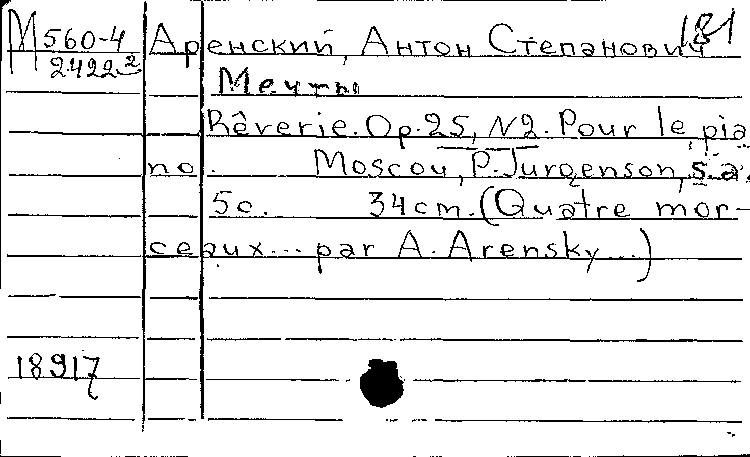 181
М 560-4 Аренский, Антон Степанович
2422² Мечты
Rêverie. Op. 25, N2. Pour le pia
no. Moscou, P. Jurgenson, s.a.
5c. 34cm. (Quatre mor-
ceaux... par A. Arensky...)
18917